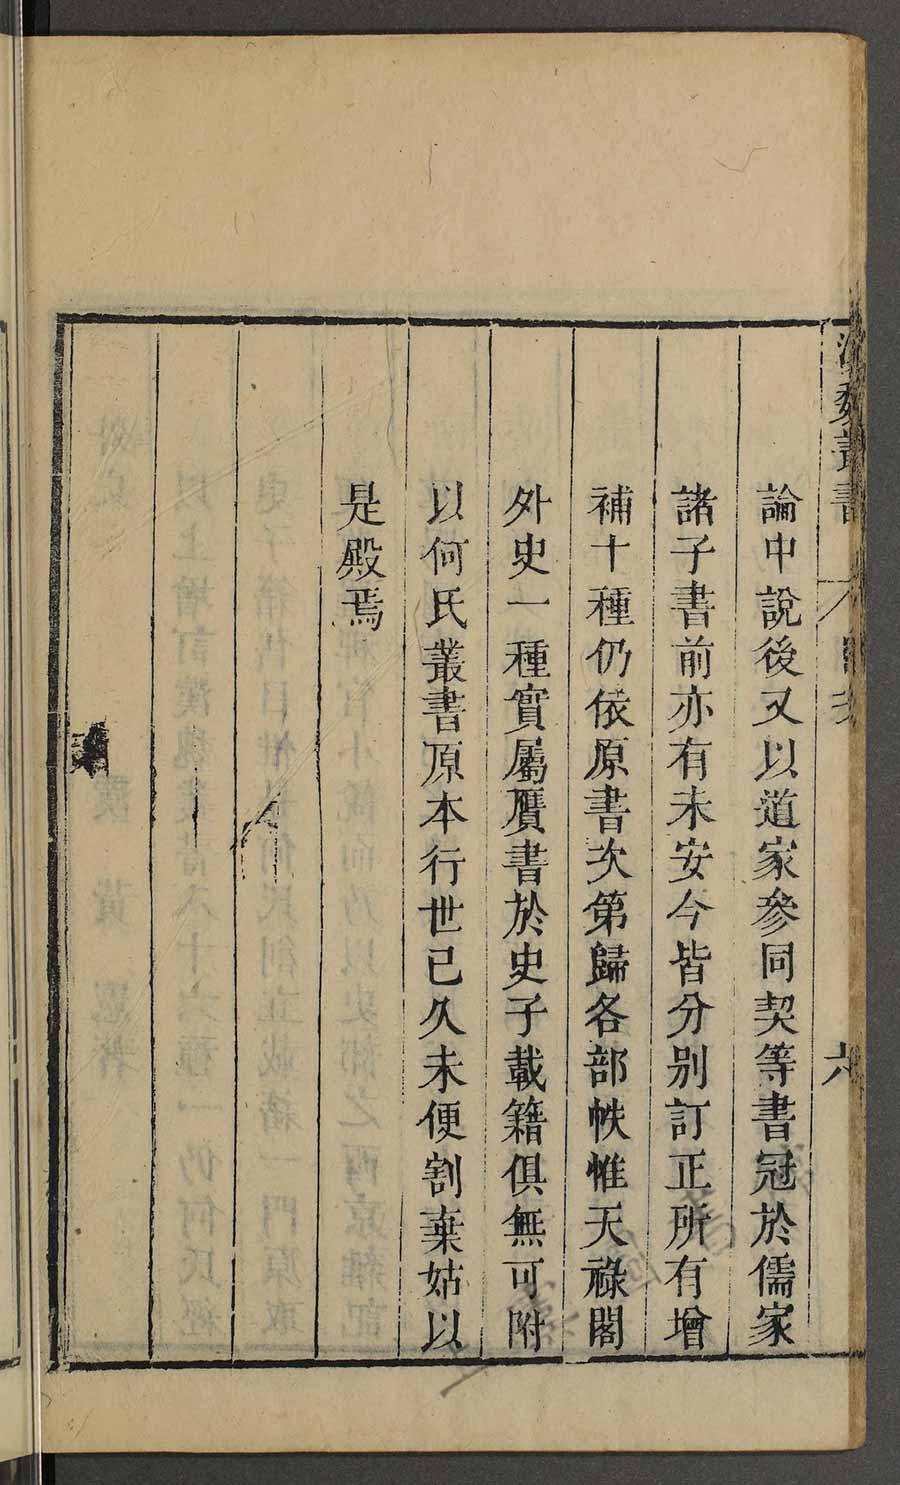 漢魏叢書 目錄 六
論中說後又以道家參同契等書冠於儒家
諸子書前亦有未安今皆分别訂正所有增
補十種仍依原書次第歸各部帙惟天祿閣
外史一種實屬贋書於史子載籍俱無可附
以何氏叢書原本行世已久未便割棄姑以
是殿焉